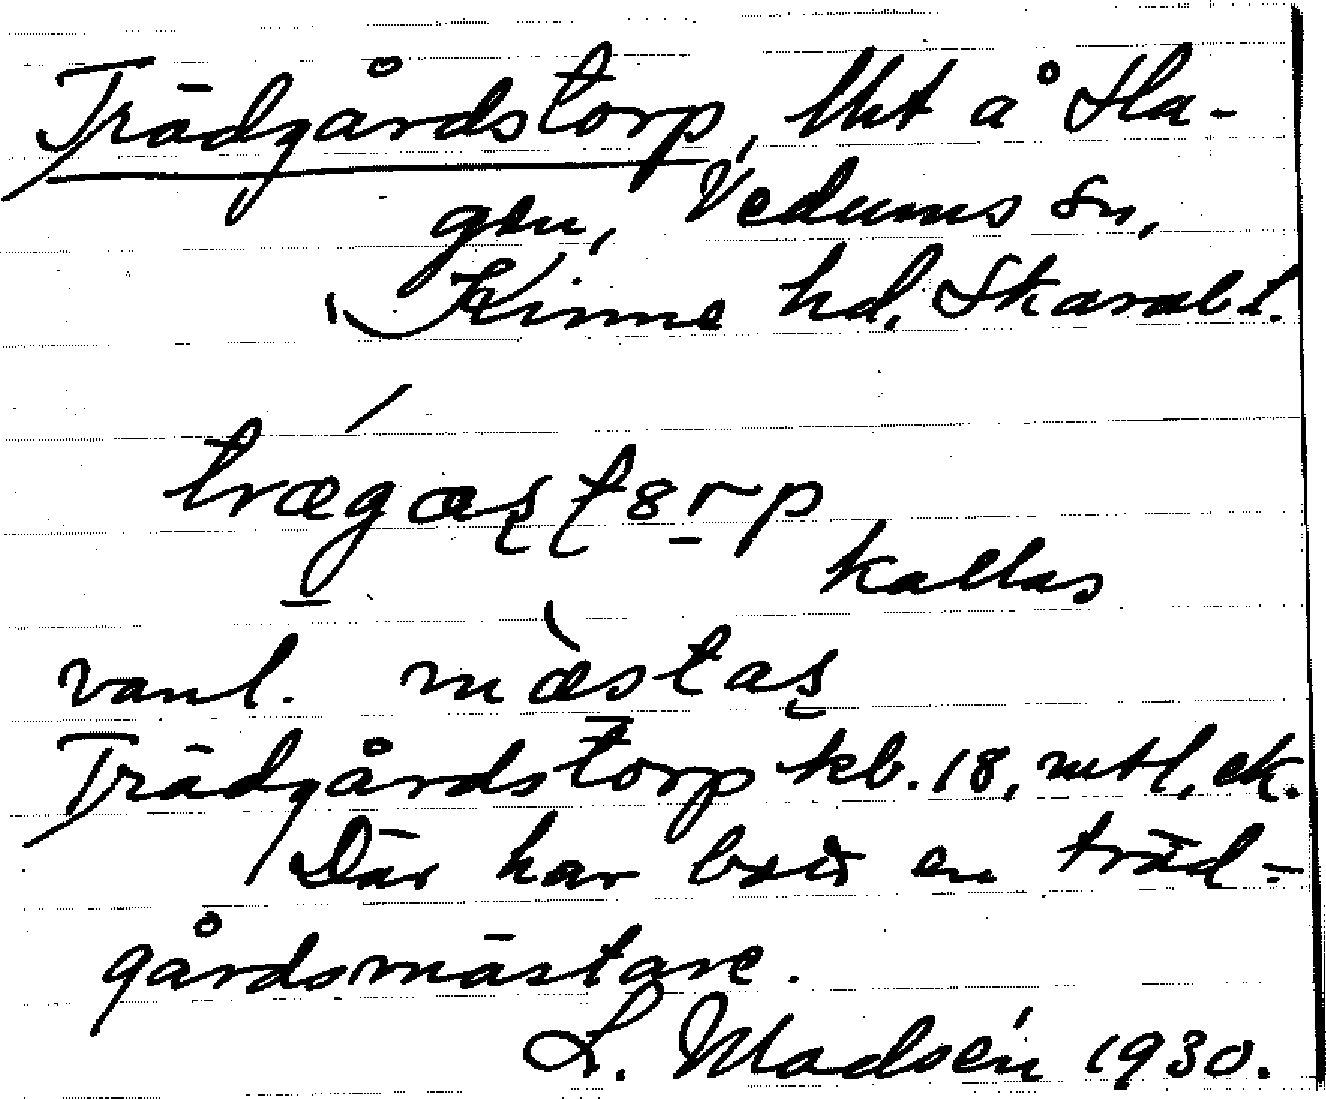 Trädgårdstorp, lht å Ha-
gen, Vedums sn,
Kinne hd. Skarabl.
trægæsterp
kallas
vanl. mæstas
Trädgårdstorp kb. 18, mtl, ek.
Där har bott en träd-
gårdsmästare.
L. Madsén 1930.